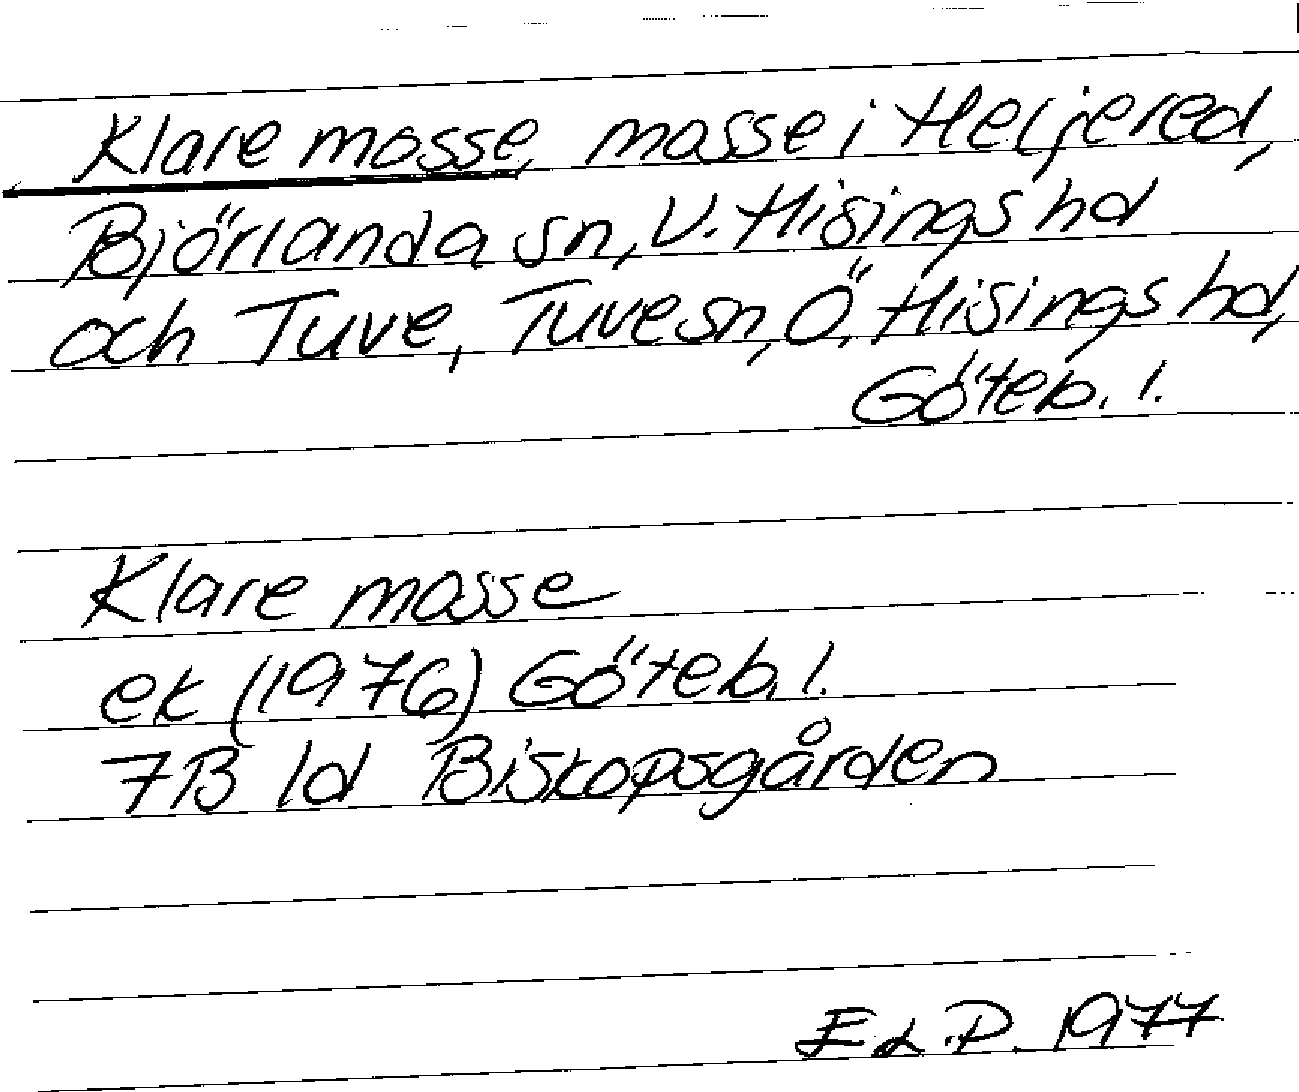 Klare mosse, mosse i Heljered,
Björlanda sn, V. Hisings hd
och Tuve, Tuve sn, Ö. Hisings hd,
Göteb. l.
Klare mosse
ek (1976) Göteb. l.
7B 1d Biskopsgården
E.d.P. 1977